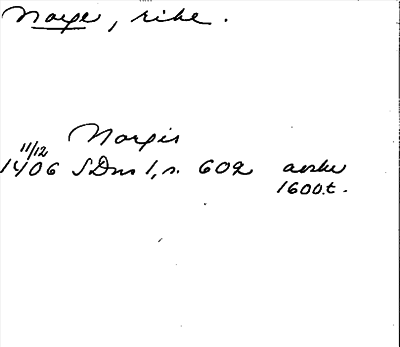 Norge, rike.
Norgis
11/12
1406 SDns 1, s. 602 avskr
1600.t.